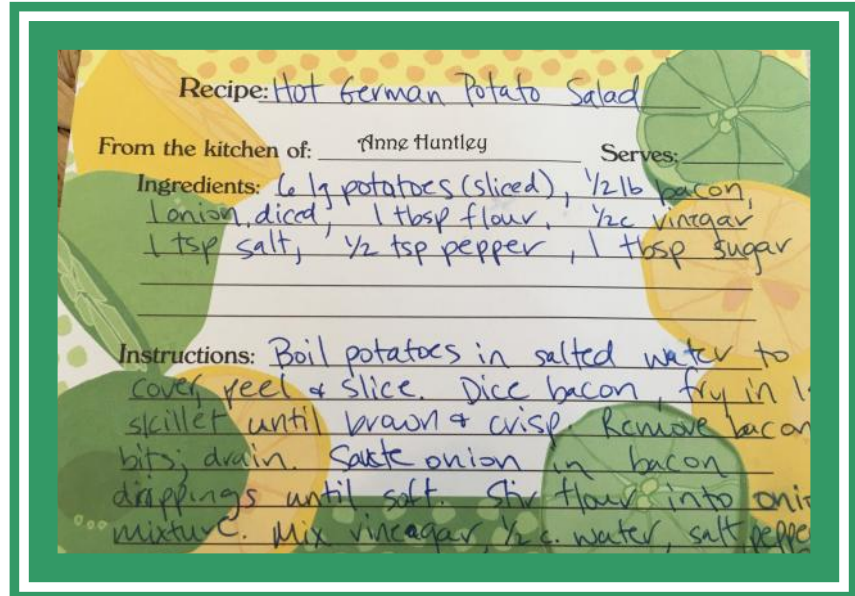 Recipe: Hot German Potato Salad
From the kitchen of: Anne Huntley Serves:
Ingredients: 6 lg potatoes (sliced), 1/2 lb bacon,
1 onion, diced, 1 tbsp flour, 1/2 c vinegar
1 tsp salt, 1/2 tsp pepper, 1 tbsp sugar
Instructions: Boil potatoes in salted water to
cover, peel & slice. Dice bacon, fry in
skillet until brown & crisp. Remove bacon
bits; drain. Saute onion in bacon
drippings until soft. Stir flour into
mixture. Mix vineagar, 1/2 c. water, salt